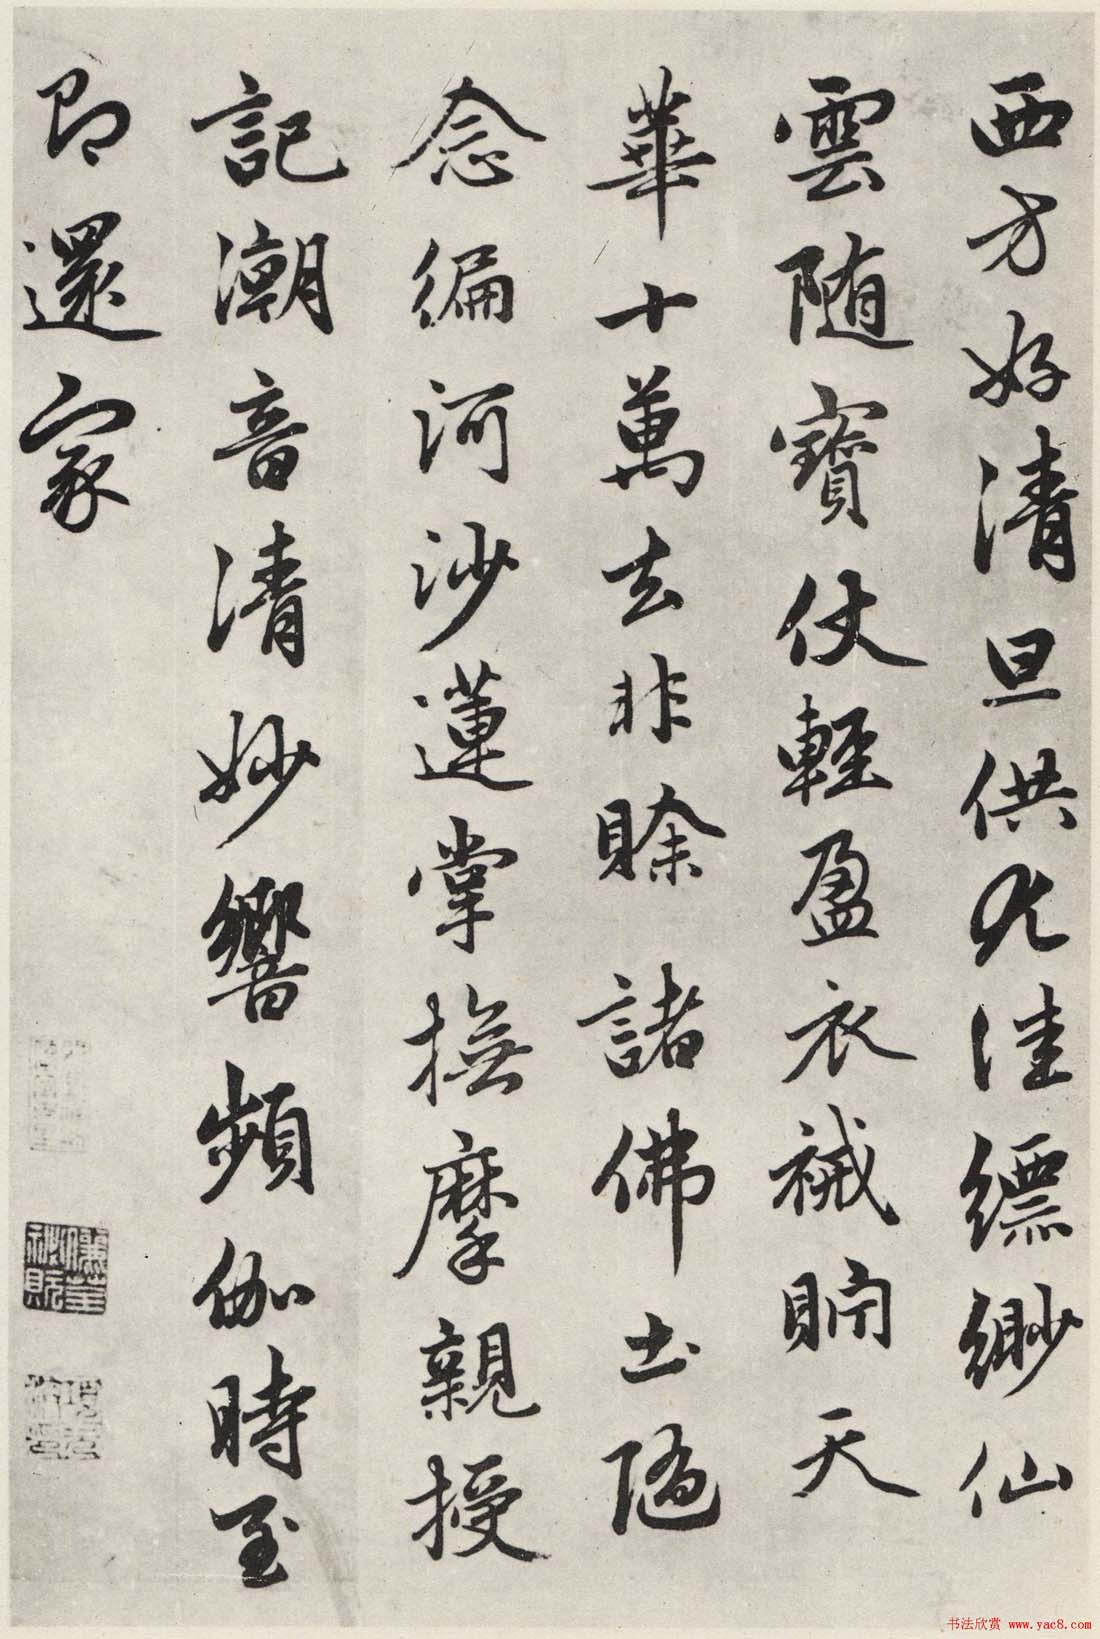 西方好清旦供尤佳縹緲仙
雲随寶仗輕盈衣裓貯天
華十萬去非賒 諸佛土隨
念編河沙蓮掌撫摩親授
記潮音清妙響頻伽時至
即還家
书法欣赏 www.yac8.com